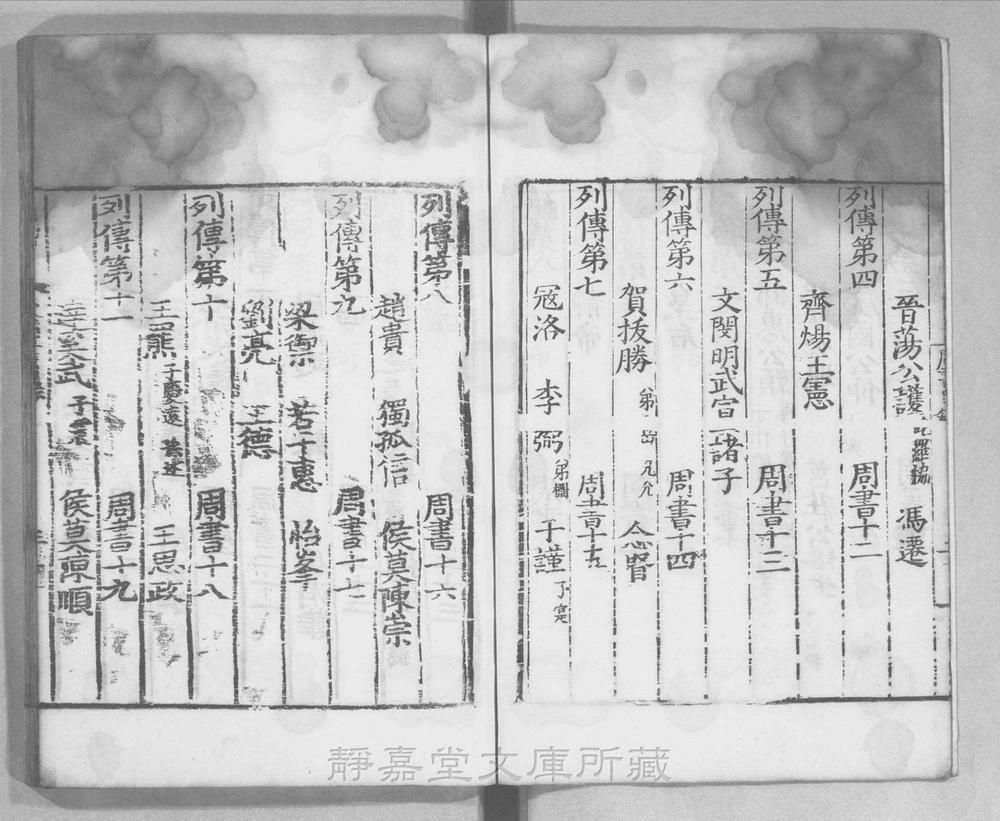 晉蕩公護 叱羅協 馮遷
列傳第四 周書十二
齊煬王憲
列傳第五 周書十三
文閔明武宣諸子
列傳第六 周書十四
賀拔勝 兄允 念賢
列傳第七 周書十五
寇洛 李弼 弟㯹 于謹 子寔
列傳第八 周書十六
趙貴 獨孤信 侯莫陳崇
列傳第九 周書十七
梁禦 若干惠 怡峯
劉亮 王德
列傳第十 周書十八
王羆 子慶遠 孫述 王思政
列傳第十一 周書十九
達奚武 子震 侯莫陳順
靜嘉堂文庫所藏